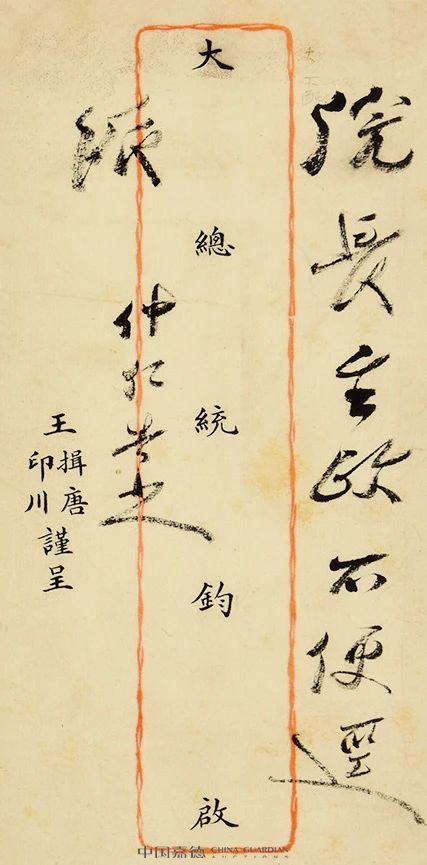 院長主政不便逕
大總統鈞啟
仲仁告之
王揖唐
印川
謹呈
中国嘉德 CHINA GUARDIAN
AUCTIONS